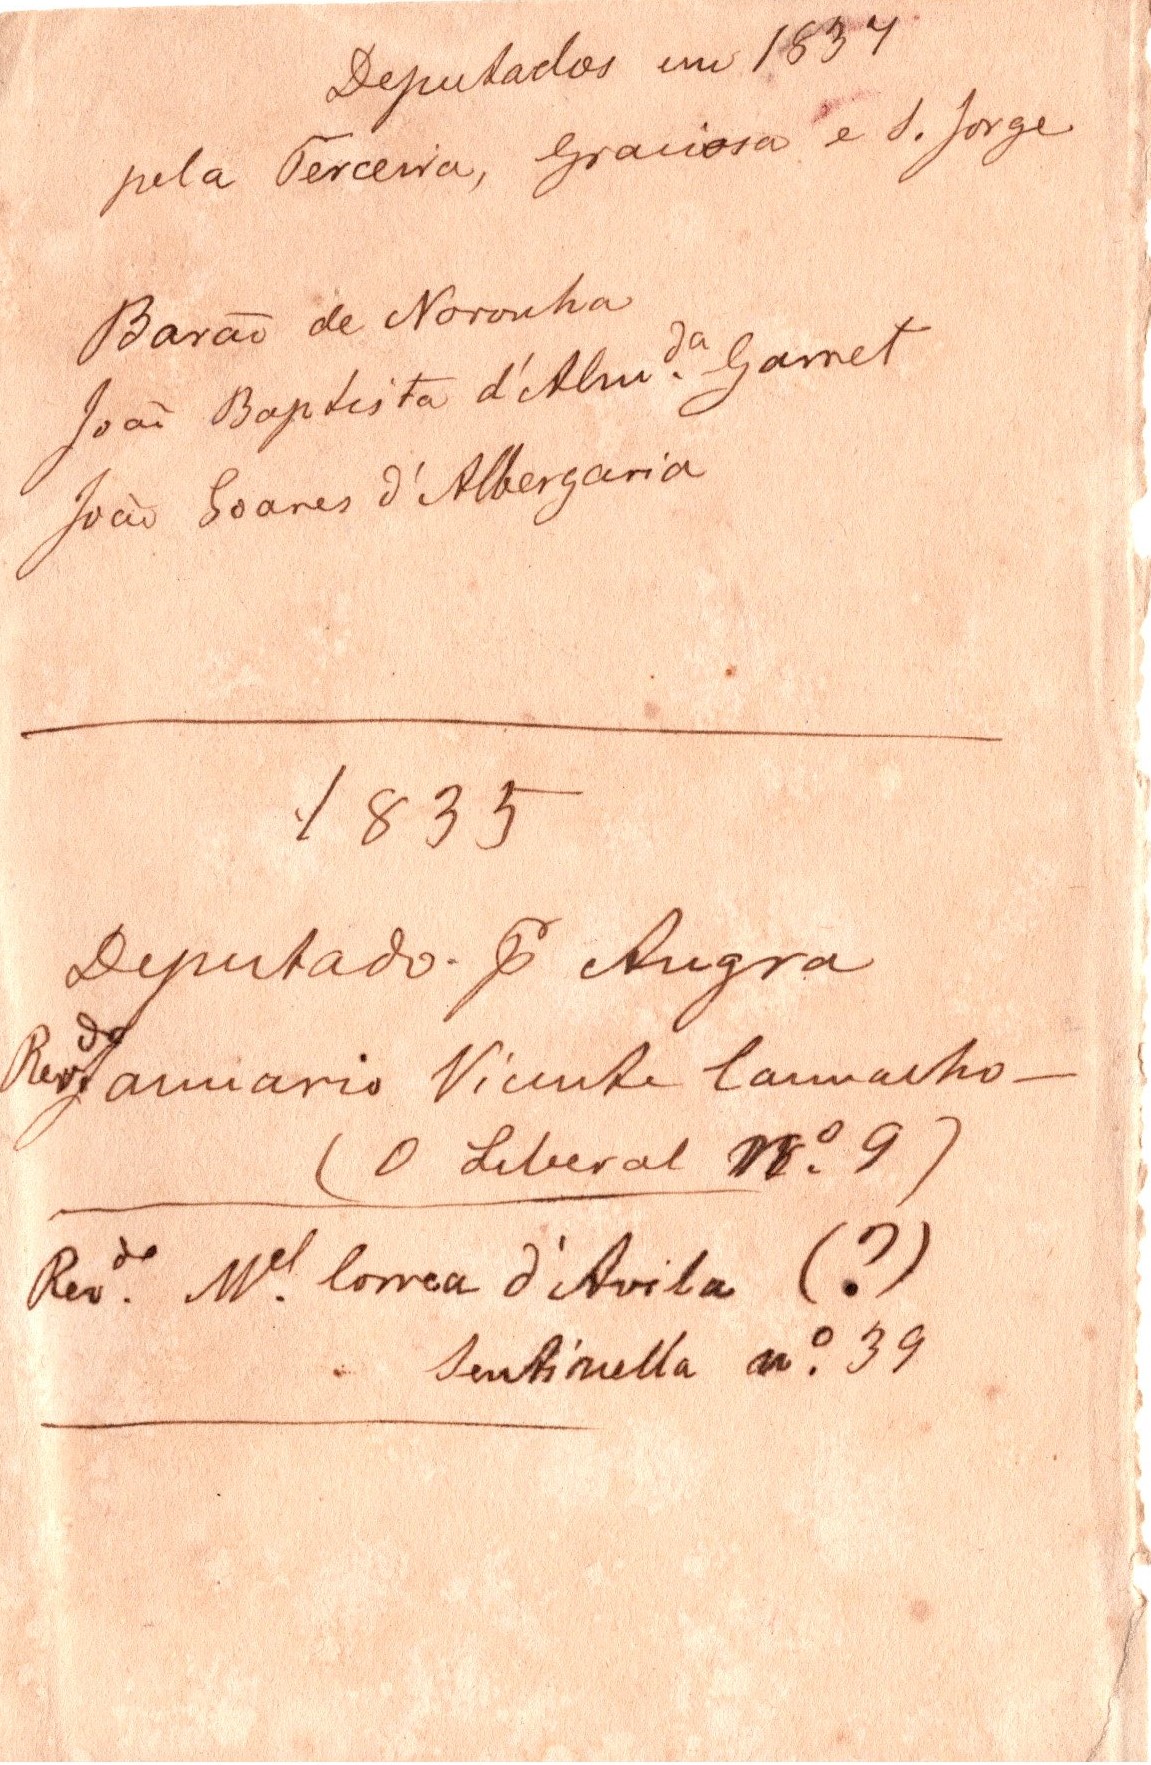 Deputados em 1837
pela Terceira, Graciosa e S. Jorge
Barão de Noronha
João Baptista d'Alm.da Garret
João Soares d'Albergaria
1835
Deputado pr Angra
Revdo Januario Vicente Cammacho —
(O Liberal nº. 9)
Rev.do M.el Correa d'Avila (?)
Sentinella nº. 39